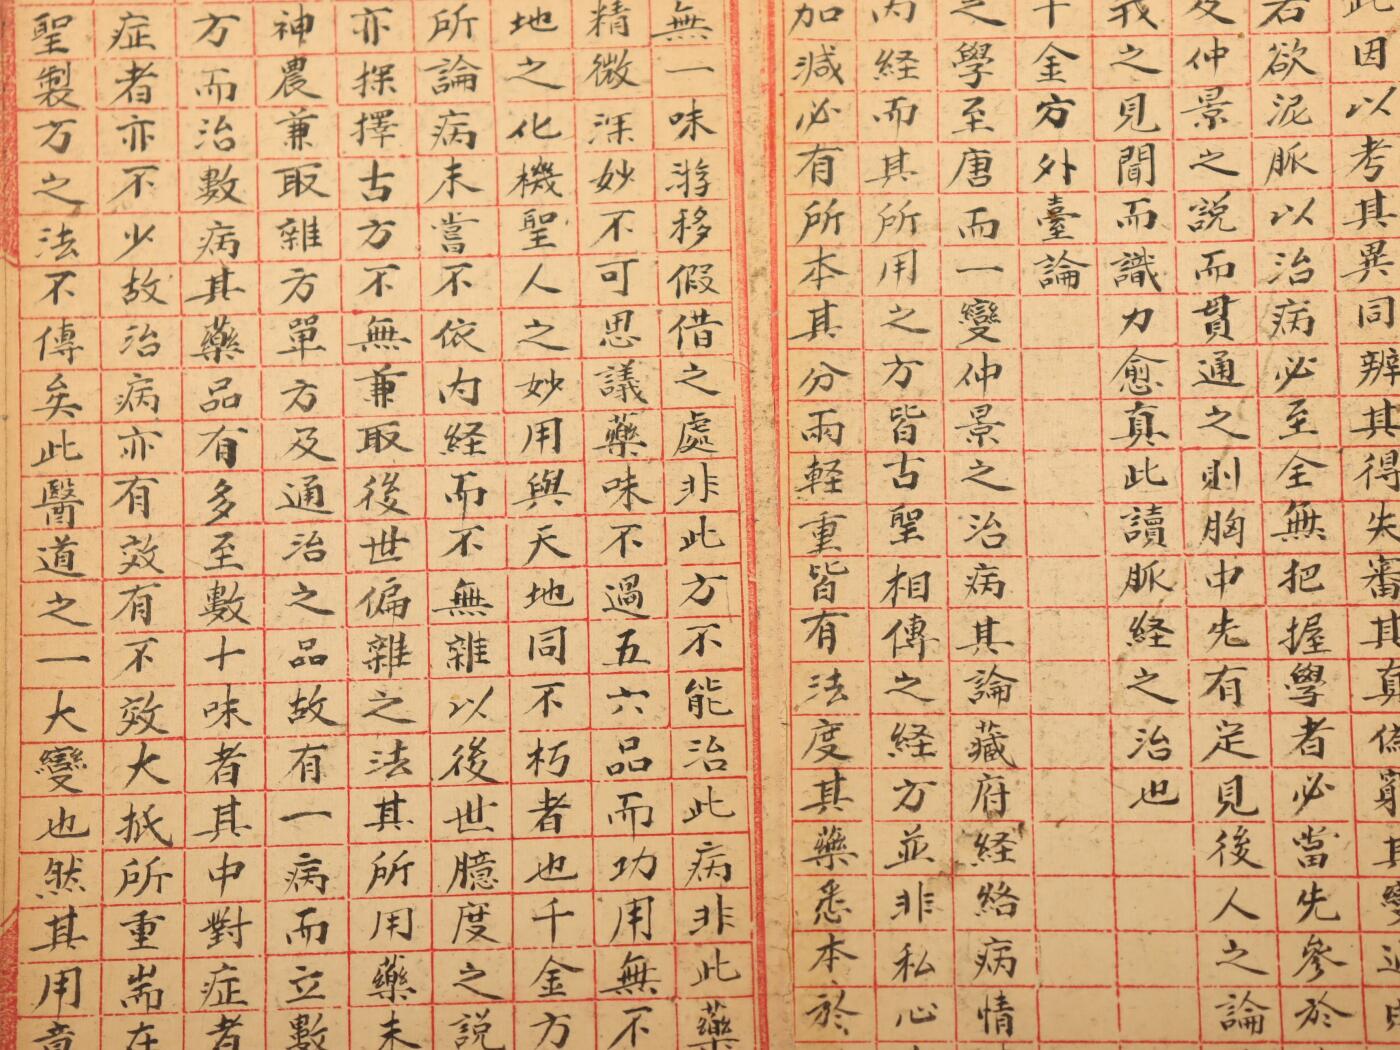 此因以考其異同辨其得失審其真偽窮其
若欲泥脈以治病必至全無把握學者必當先參於
及仲景之說而貫通之則胸中先有定見後人之論
我之見聞而識力愈真此讀脈経之治也
千金方外臺論
之學至唐而一變仲景之治病其論藏府経絡病情
内経而其所用之方皆古聖相傳之経方並非私心
加減必有所本其分兩軽重皆有法度其藥悉本於
無一味游移假借之處非此方不能治此病非此藥
精微深妙不可思議藥味不過五六品而功用無不
地之化機聖人之妙用與天地同不朽者也千金方
所論病未嘗不依内経而不無雜以後世臆度之說
亦採擇古方不無兼取後世偏雜之法其所用藥未
神農兼取雜方單方及通治之品故有一病而立數
方而治數病其藥品有多至數十味者其中對症者
症者亦不少故治病亦有效有不效大抵所重耑在
聖製方之法不傳矣此醫道之一大變也然其用意